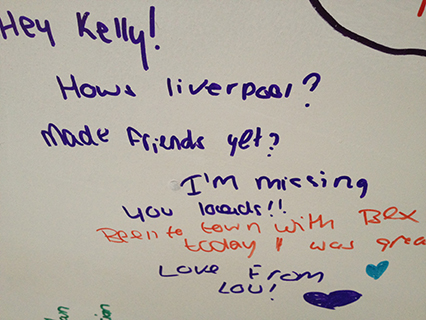 Hey Kelly!
Hows liverpool?
Made friends yet?
I'm missing
you loads!!
Been to town with Bex
today I was grea
Love From
Lou!